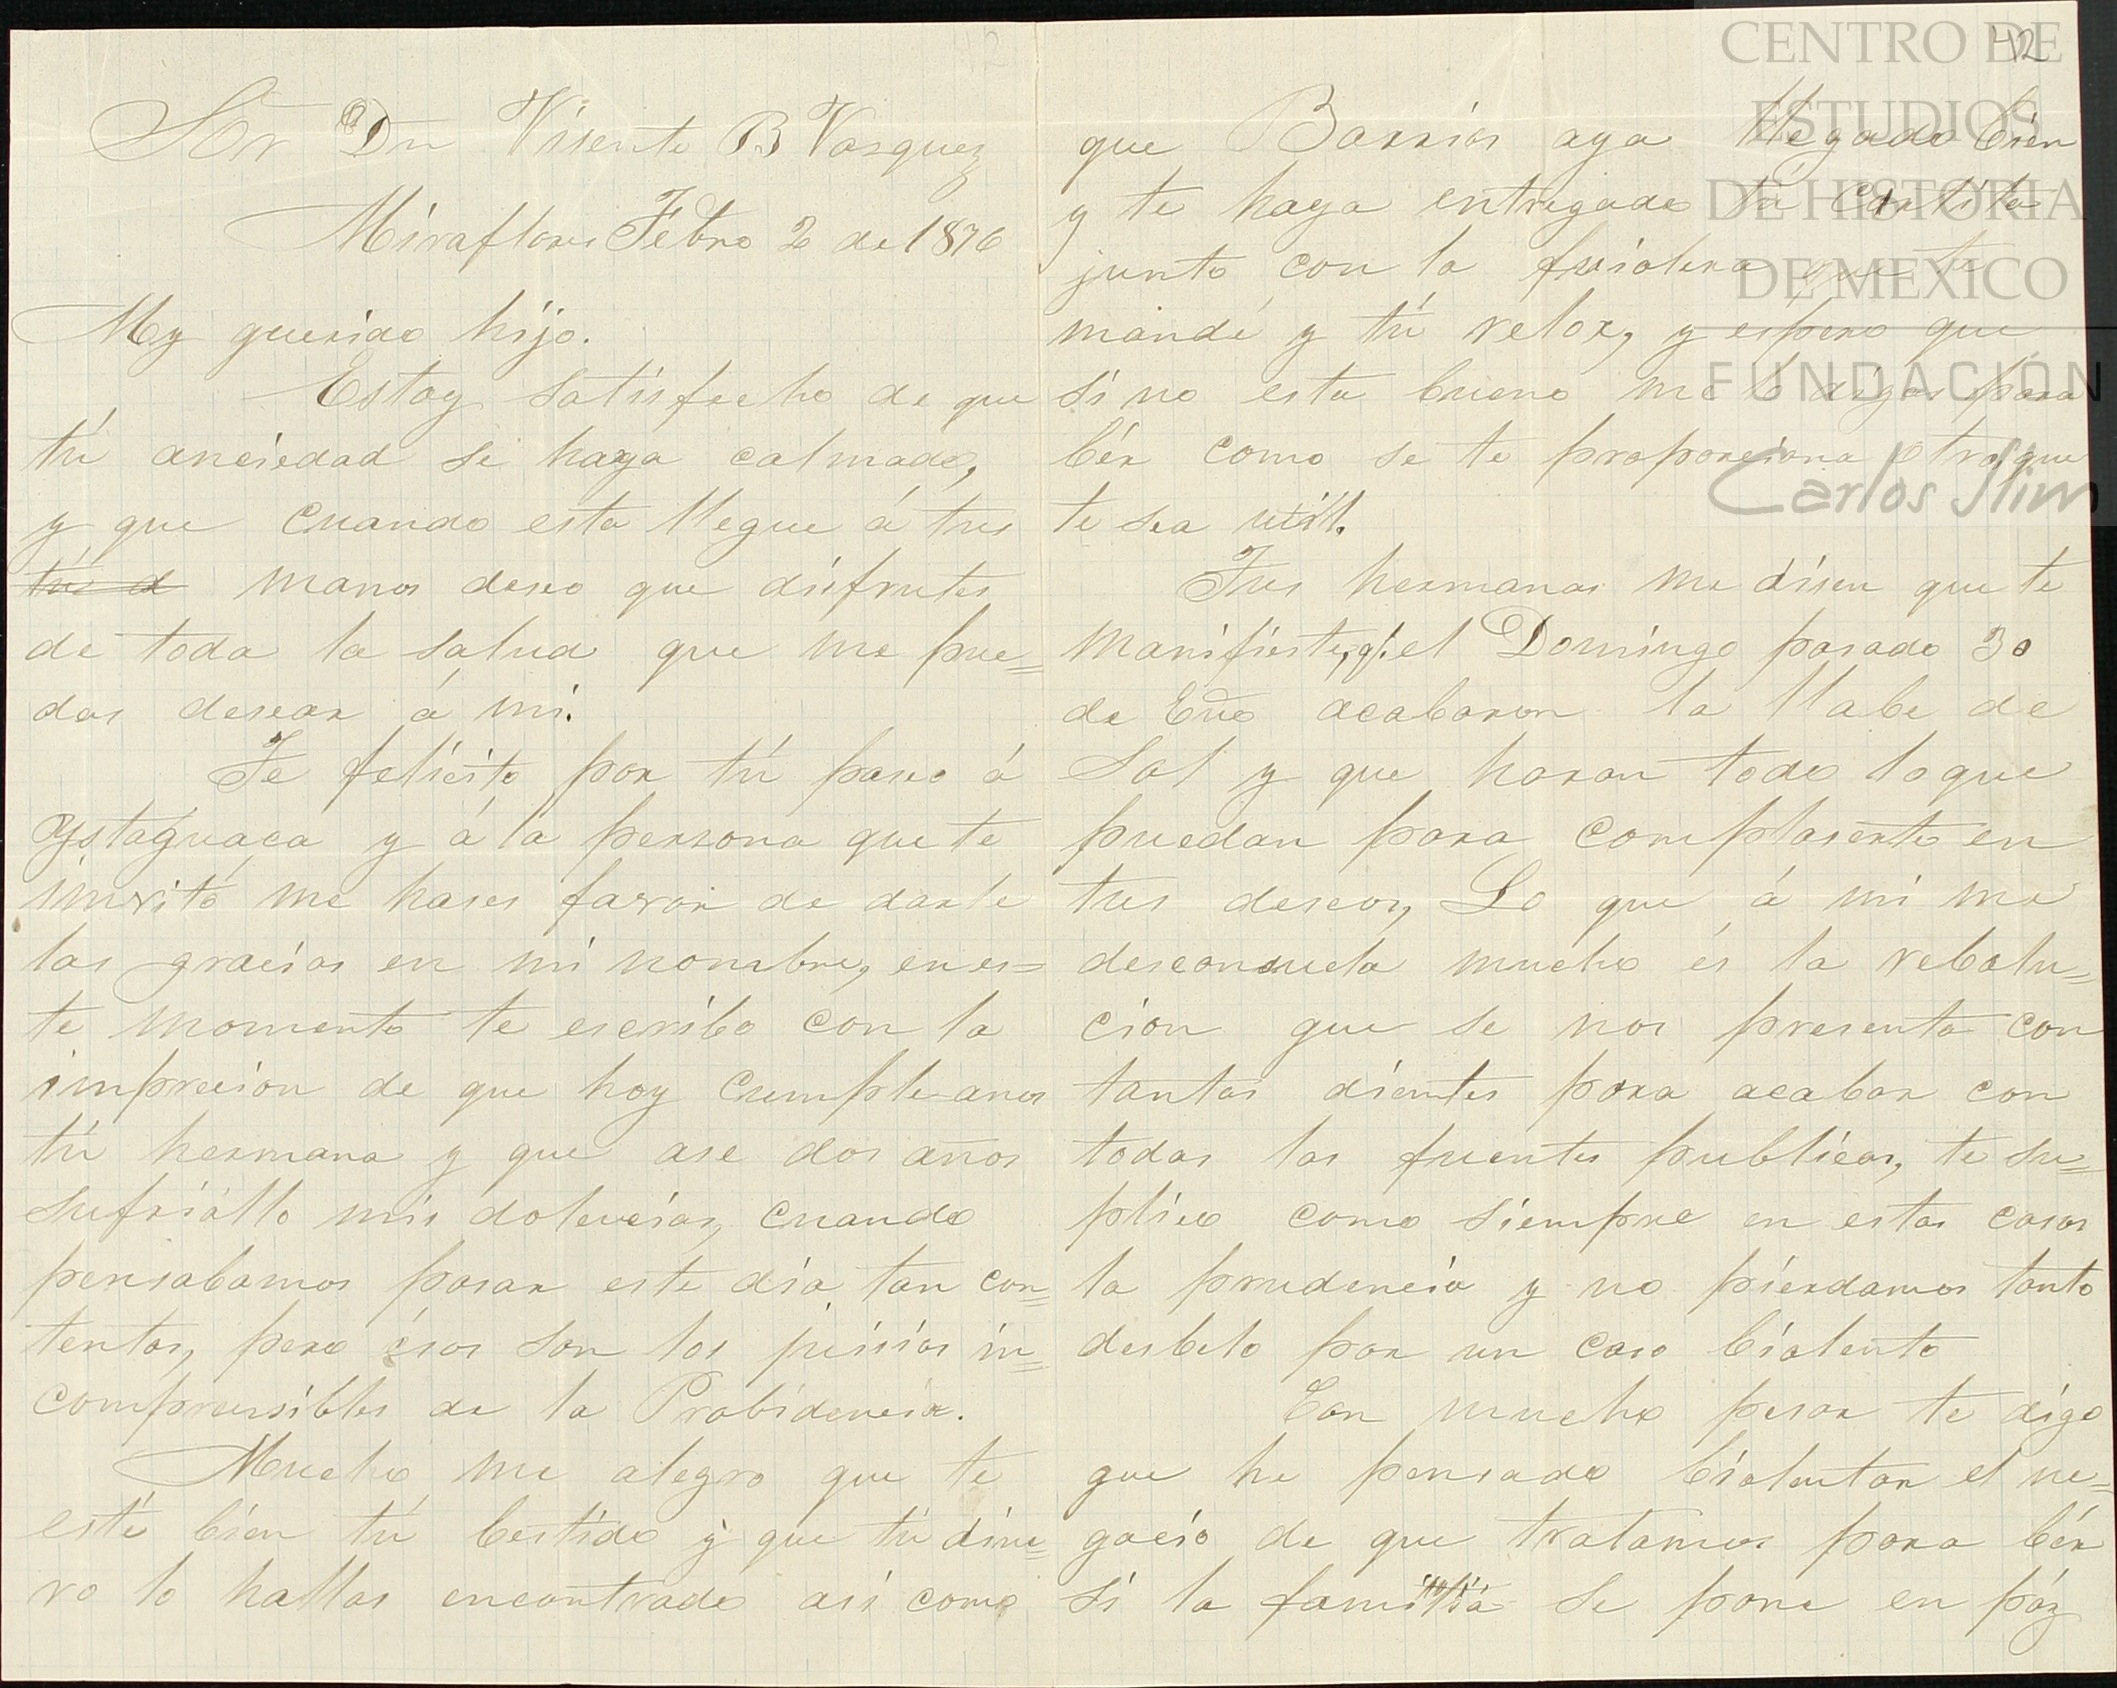 Sõr Dn Visente B Vasquez
Miraflores Febro 2 de 1876
My querido hijo.
Estoy satisfecho de que
tú anciedad se haya calmado,
y que cuando esta llegue á tus
tus d manos deseo que disfrutes
de toda la salud que me pue=
das desear á mi.
Te felicito por tú paseo á
Ystaguaca y á la persona que te
invitó me hases favor de darle
las gracias en mi nombre, en es=
te momento te escribo con la
impreción de que hoy cumple anos
tú hermana y que ase dos años
sufriallo mis dolencias, cuando
pensabamos pasar este dia tan con=
tentos, pero ésos son los juisios in=
compreusibles de la Probidencia.
Mucho me alegro que te
esté bien tú bestido y que tú dine=
ro lo hallas encontrado asi como
42
que Barrios aya llegado bien
y te haya entregado tu cartita
junto con la friolera que te
mandé y tú relox, y espero que
si no esta bueno me lo digas para
bér como se te proporciona otro, que
te sea util.
Tus hermanas me disen que te
manifieste, q.e el Domingo pasado 30
de Eño acabaron la llabe de
Sol y que haran todo lo que
puedan para complaserte en
tus deseos, Lo que á mi me
desconsuela mucho és la rebolu=
cion que se nos presenta con
tantos dientes para acabar con
todas las fuentes publicas, te su=
plico como siempre en estos casos
la prudencia y no pierdamos tanto
desbelo por un caso biolento
Con mucho pesar te digo
que he pensado biolentar el ne=
gocio de que tratamos para bér
si la familia se pone en páz
CENTRO DE
ESTUDIOS
DE HISTORIA
DE MEXICO
FUNDACIÓN
Carlos Slim